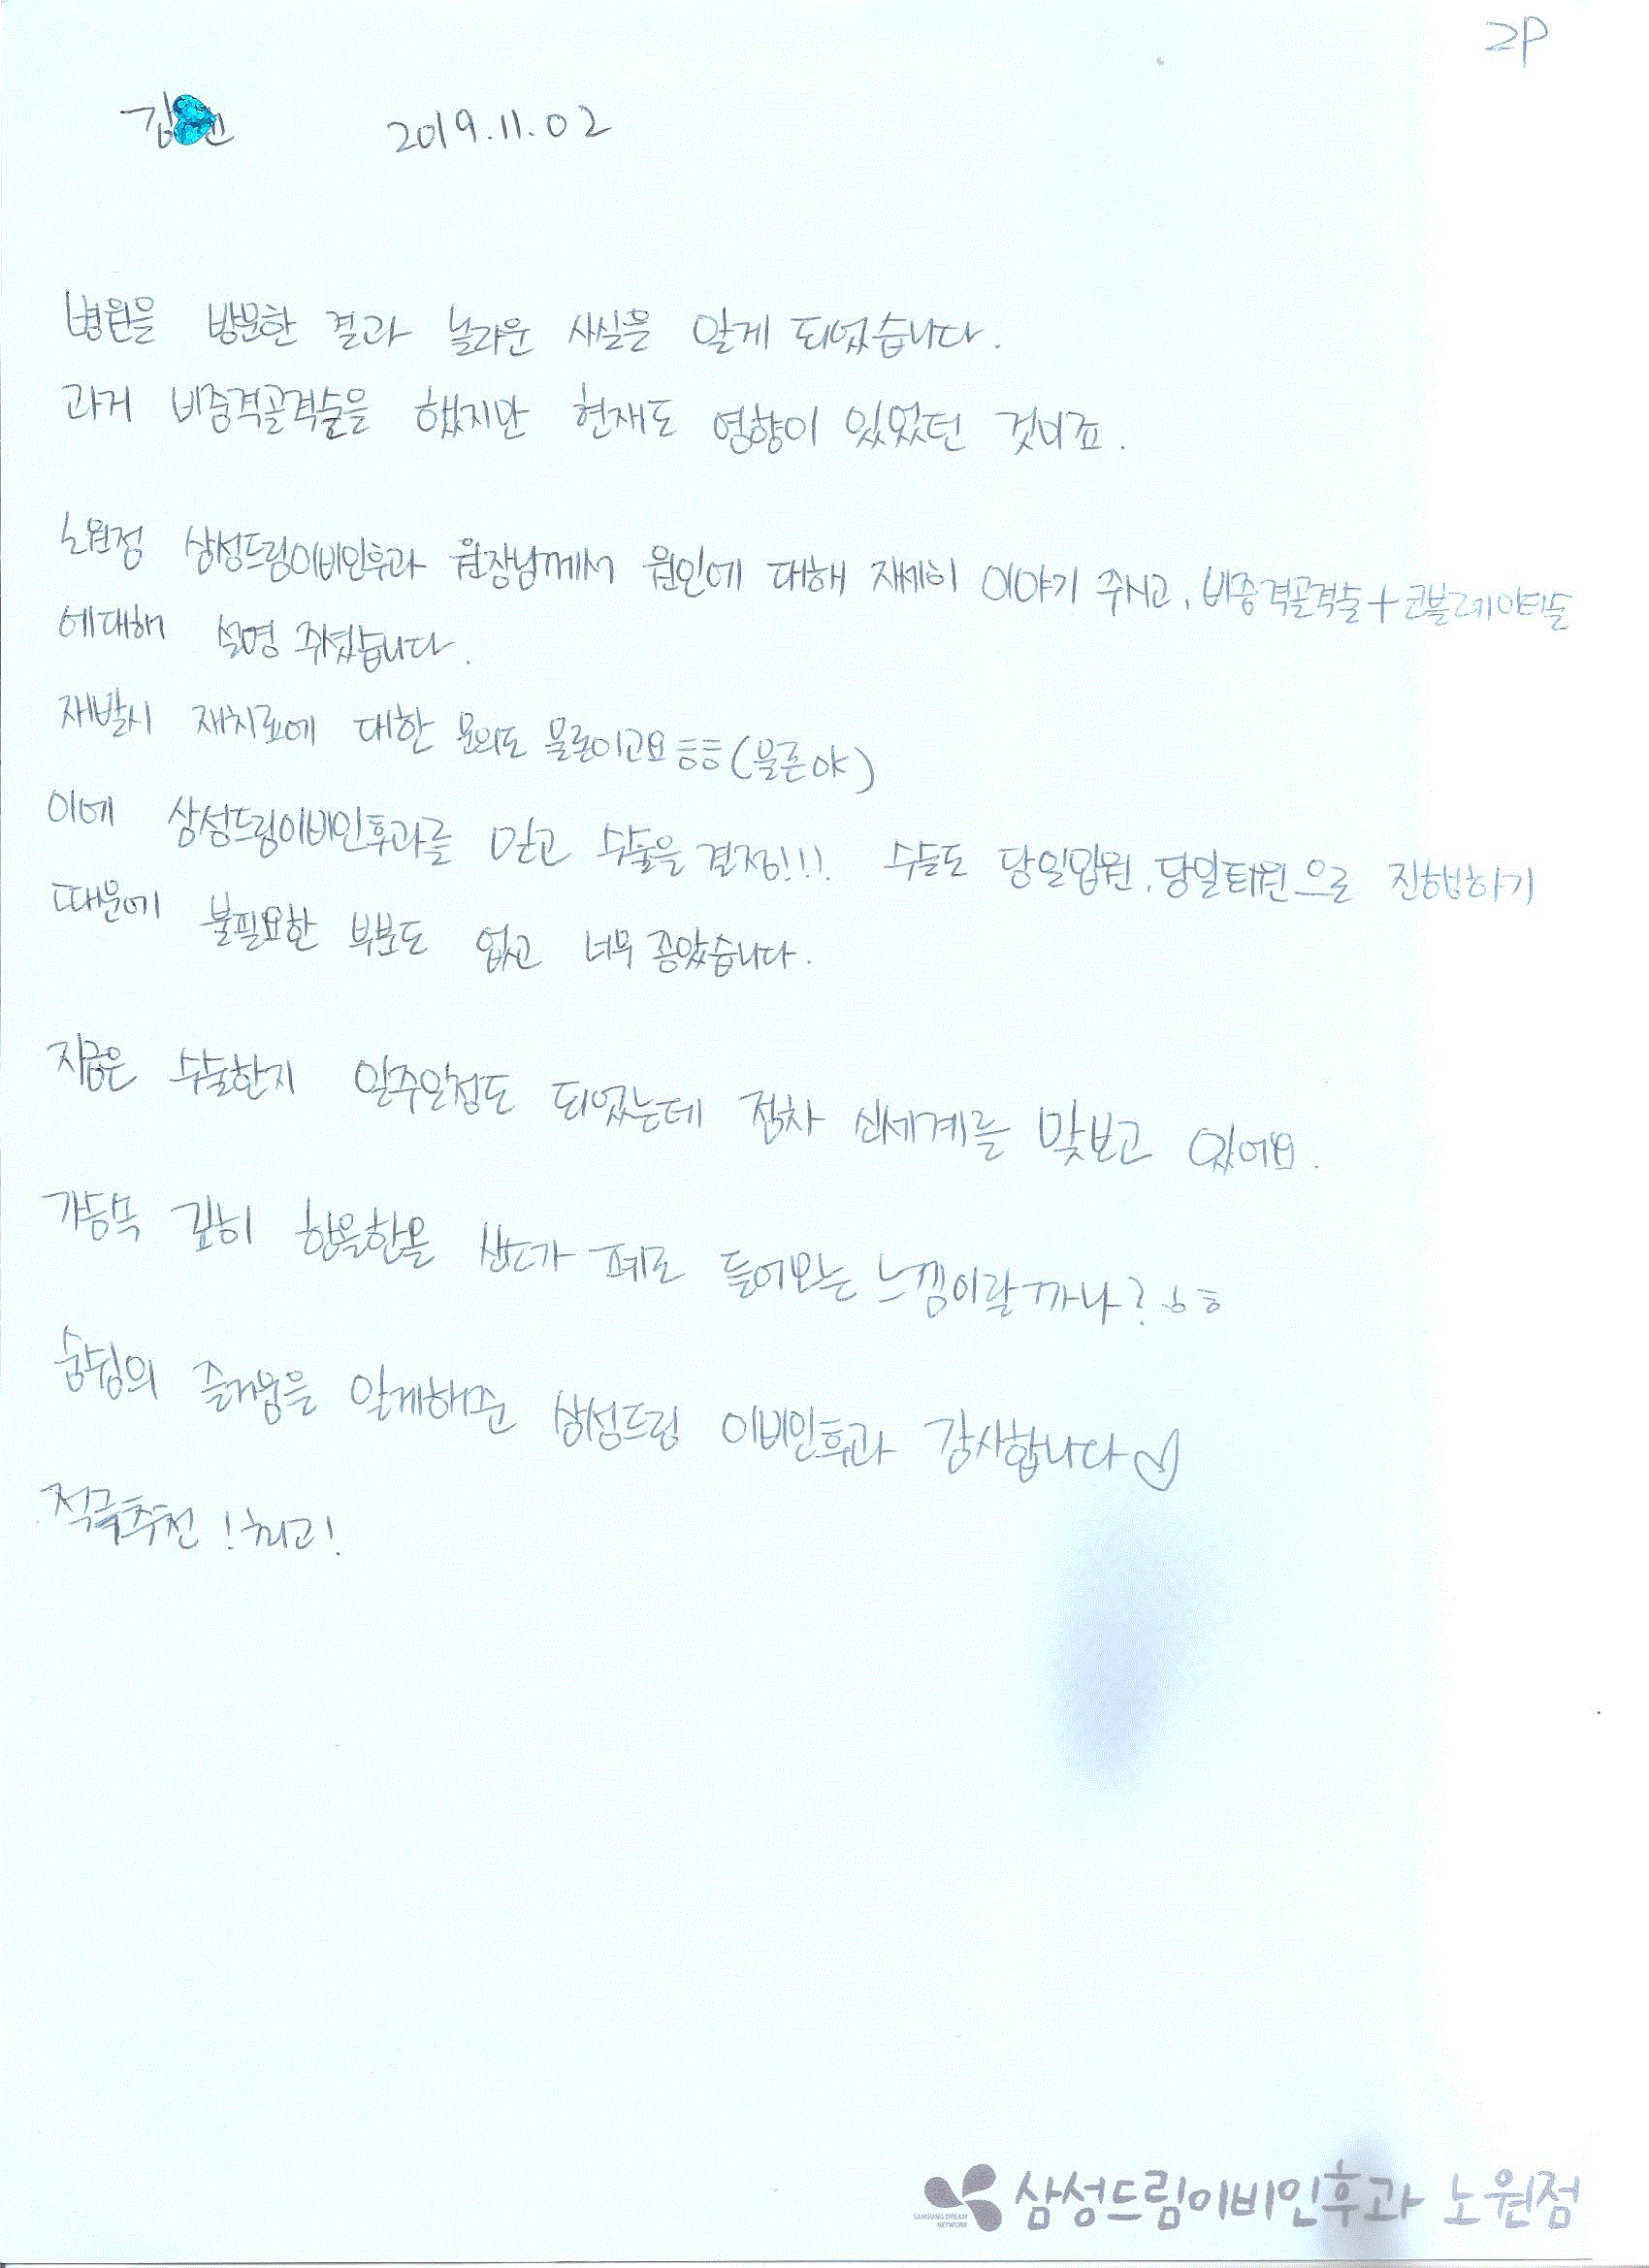 2P
김 2019.11.02
병원을 방문한 결과 놀라운 사실을 알게 되었습니다.
과거 비중격골격술을 했지만 현재도 영향이 있었던 것이죠.
노원점 삼성드림이비인후과 원장님께서 원인에 대해 자세히 이야기 주시고, 비중격골격술+코블레이터술
에대해 설명 주셨습니다.
재발시 재치료에 대한 문의도 물론이고요ㅎㅎ(물론야)
이에 삼성드림이비인후과를 믿고 수술을 결정!!! 수술도 당일입원, 당일퇴원으로 진행하기
때문에 불필요한 부분도 없고 너무 좋았습니다.
지금은 수술한지 일주일정도 되었는데 점차 신세계를 맞보고 있어요.
가슴속 깊히 한올한올 산소가 폐로 들어오는 느낌이랄까나? ㅎㅎ
숨쉼의 즐거움을 알게해준 삼성드림 이비인후과 감사합니다♡
적극추천! 최고!
SAMSUNG DREAM NETWORK 삼성드림이비인후과 노원점